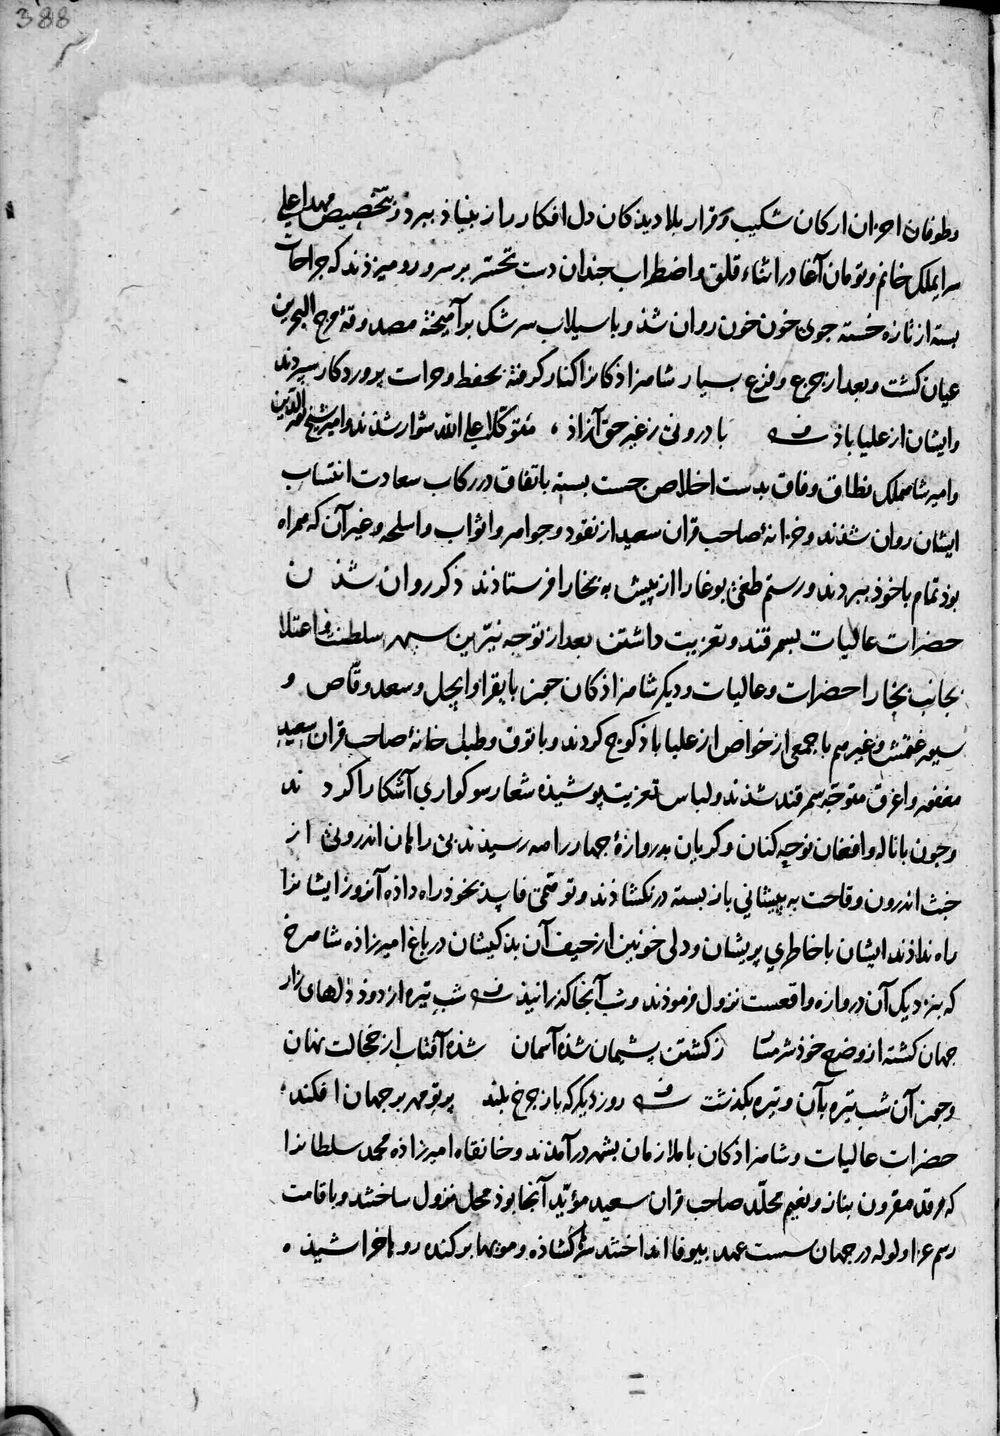 388
وطوفان احزان ارکان شکیب و قرار بلادیذکان دل افکار را از بنیاذ ببرد و بتخصیص مهد اعلی
سرایملک خانم و تومان آغا در اثناء قلق و اضطراب جندان دست تحسر بر سر و رو میزذند که جراحات
بسته از تازه خسته جوی خون خون روان شذ و با سیلاب سرشک بر آمیخته مصدوقهٔ مرج البحرین
عیان کشت و بعد از جزع و فزع بسیار شاهزاذکانرا کنار کرفته بحفظ و حراست پروردکار سپردند
و ایشان از علیاباذ با درونی ز غیر حق آزاذ ، متوکلا علی الله سوار شذند و امیر شیخ نور الدین
و امیر شاهملک نطاق وفاق بدست اخلاص جست بسته باتفاق در رکاب سعادت انتساب
ایشان روان شذند و خزانهٔ صاحب قران سعید از نقود و جواهر و اثواب و اسلحه و غیر آن که همراه
بوذ تمام با خوذ ببردند و رستم طغی بوغا را از پیش به بخارا فرستاذند ذکر روان شذن
حضرات عالیات بسمرقند و تعزیت داشتن بعد از توجه نیّرین سپهر سلطنت و اعتلا
بجانب بخارا حضرات و عالیات و دیکر شاهزاذکان جون بایقرا و ایجل و سعد وقّاص و
سیورغتمش و غیرهم با جمعی از خواص از علیاباذ کوج کردند و با توق و طبل خانهٔ صاحب قران سعید
مغفور و اغرق متوجه سمرقند شذند و لباس تعزیت پوشیذه شعار سوکواری آشکارا کردند
و جون با ناله و افغان نوحه کنان و کریان بدروازهٔ جهار راهه رسیذند بی راهان اندرونی از
خبث اندرون و قاحت به پیشانی باز بسته در نکشاذند و توهمی فاسد بخوذ راه داذه آن روز ایشانرا
راه نداذند ایشان با خاطری پریشان و دلی خونین از حیف آن بذکیشان در باغ امیرزاذه شاهرخ
که بنزدیک آن دروازه واقعست نزول فرموذند و شب آنجا کذرانیذند شب تیره از دوذ دلهای زار
جهان کشته از وضع خوذ شرمسار ز کشتن پشیمان شذه آسمان شذه آفتاب از خجالت نهان
و جون آن شب تیره بآن وتیره بکذشت روز دیکر که باز جرخ بلند پرتو مهر بر جهان افکند ؛
حضرات عالیات و شاهزاذکان با ملازمان بشهر درآمذند و خانقاه امیرزاذه محمد سلطانرا
که مرقد مقرون بناز و نعیم مخلّد صاحب قران سعید مؤیّد آنجا بوذ محل نزول ساختند و باقامت
رسم عزا ولوله در جهان سست عهد بیوفا انداختند سر کشاذه و مویها برکنده رو ها خراشیذه •